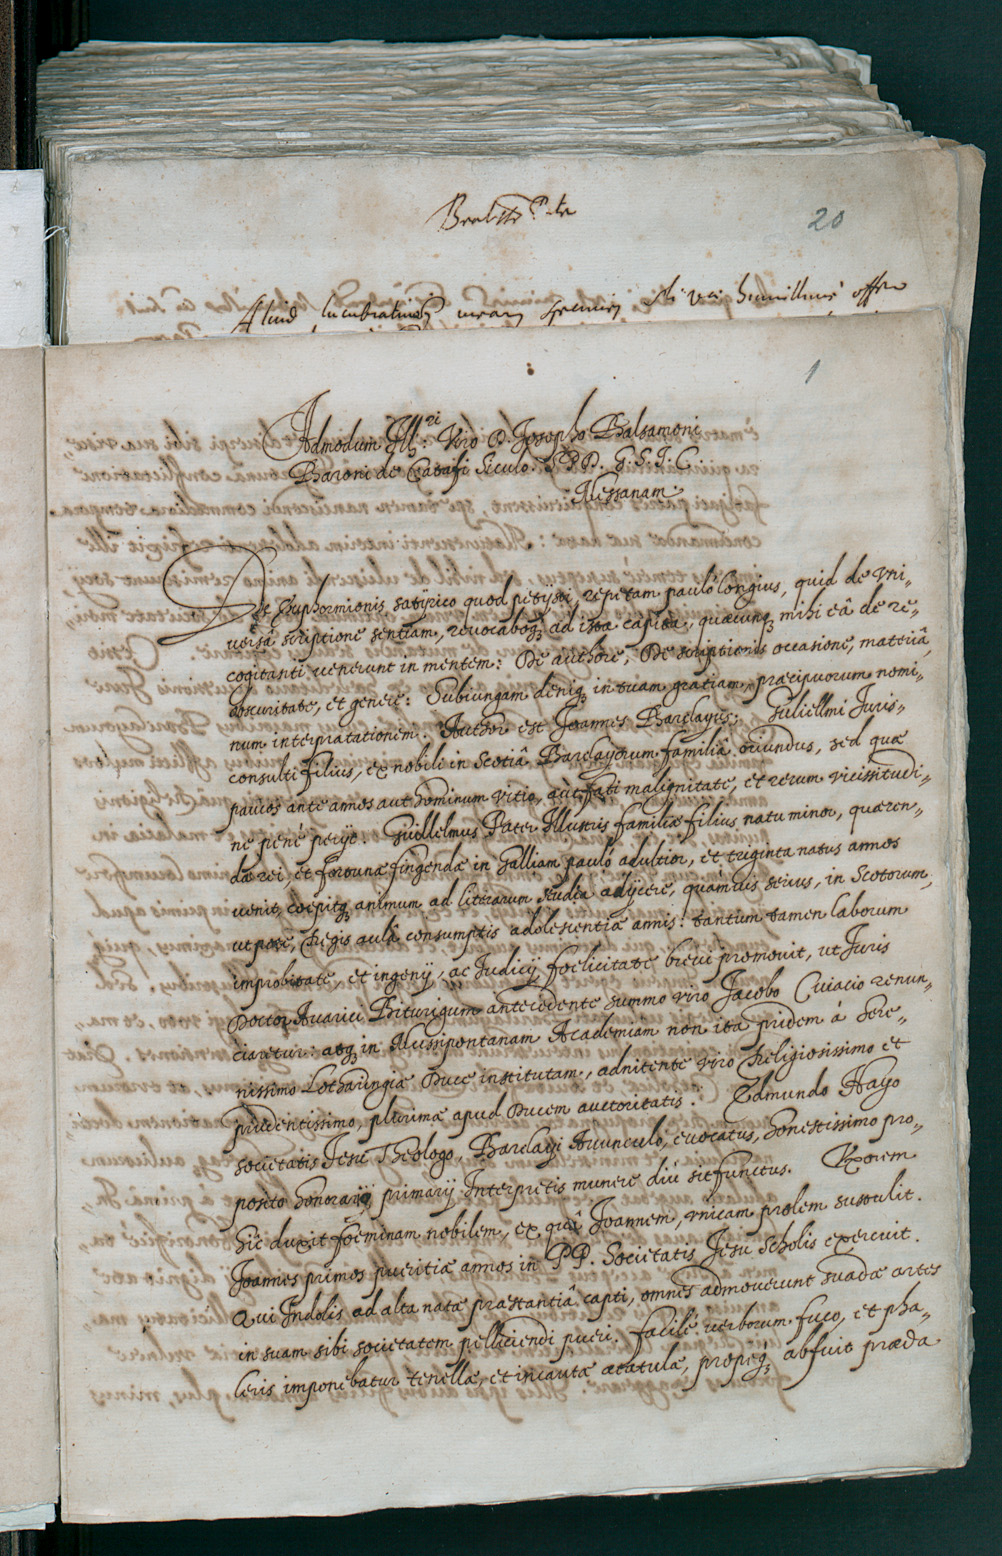 20
Aliud lucubrationũ mearũ specimen humillime offero
1
Admodum Ill:ri Viro D. Josepho Balsamoni
Baroni de Catafi Siculo. S.P.D. G.S.J.C.
Messanam.
De Euphormionis satÿrico quod petijsti, reputam paulò longius, quid de vni-
versâ scriptione sentiam, revocaboq; ad ista capita, quæcunq; mihi eâ de re
cogitanti venerunt in mentem: De authore, De scriptionis occasione, materiâ,
obscuritate, et genere: Subiungam deniq; in tuam gratiam, præcipuorum nomi-
num interpretationem. Author est Joannes Barclayus; Guliellmi Juris-
consulti filius, ex nobili in Scotiâ Barclayorum familiâ oriundus, sed quæ
paucos ante annos aut hominum vitio, aut fati malignitate, et rerum vicissitudi-
ne penè perijt. Guillelmus Pater Illustris familiæ filius natu minor, quæren-
dæ rei, et fortunæ fingendæ in Galliam paulò adultior, et triginta natus annos
venit, coepitq; animum ad literarum studia adijcere, quamuis serius, in Scotorum,
utpote, Regis aulâ consumptis adolescentiæ annis: tantum tamen laborum
improbitate, et ingenij, ac Judicij foelicitate brevi promovit, ut Juris
Doctor Avarici Biturigum antecedente summo viro Jacobo Cuiacio renun-
ciaretur: atq; in Mussipontanam Academiam non ita pridem à Sere-
nissimo Lotharingiæ Duce institutam, adnitente viro Religiosissimo et
prudentissimo, plurimæ apud Ducem auctoritatis: Edmundo Hayo
societatis Jesu Theologo, Barclayi Avunculo, evocatus, honestissimo pro-
posito honorarij primarij Interpretis munere diù sit functus. Uxorem
hic duxit foeminam nobilem, ex quâ Joannem, vnicam prolem sustulit.
Joannes primos pueritiæ annos in PP. Societatis Jesu scholis exercuit.
Qui Indolis ad alta natæ præstantiâ capti, omnes admoverunt suadæ artes
in suam sibi societatem pelliciendi pueri. facilè verborum fuco, et pha-
leris imponebatur tenellæ, et incautæ ætatulæ, propeq; abfuit præda